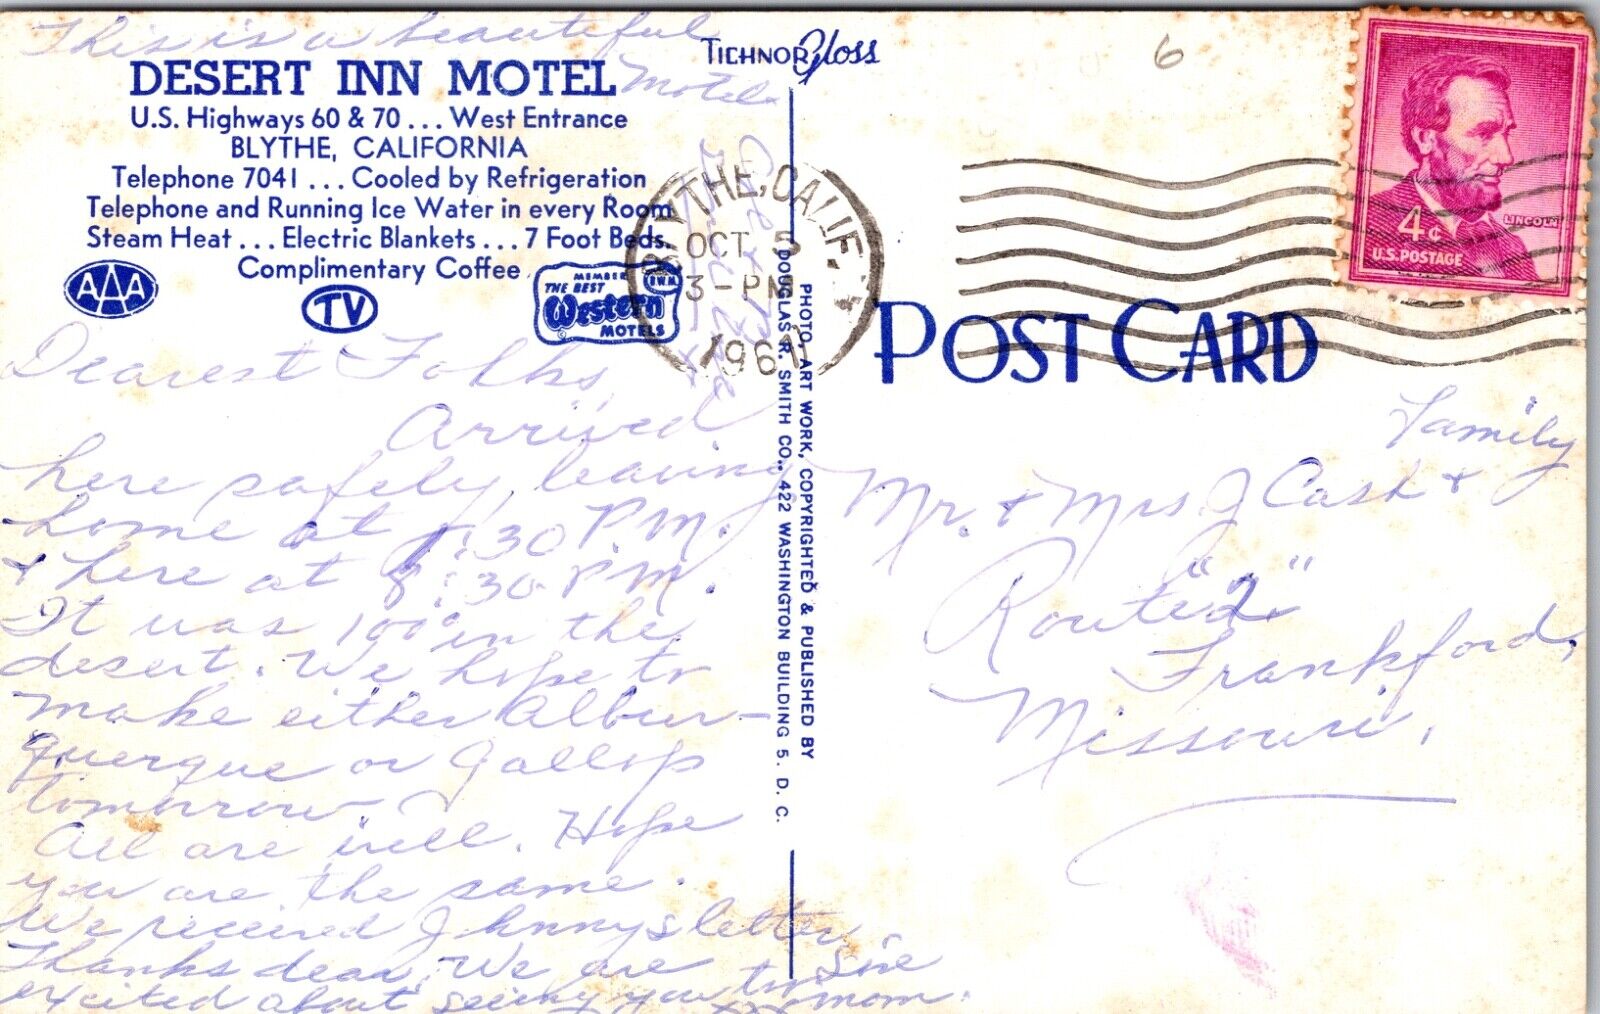 This is a beautiful
Motel.
DESERT INN MOTEL
U.S. Highways 60 & 70 ... West Entrance
BLYTHE, CALIFORNIA
Telephone 7041 ... Cooled by Refrigeration
Telephone and Running Ice Water in every Room
Steam Heat ... Electric Blankets ... 7 Foot Beds
Complimentary Coffee
AAA
TV
MEMBER
B.W.M.
THE BEST
Western
MOTELS
Dearest Folks,
Arrived
here safely, leaving
home at 1:30 P.M.
& here at 8:30 P.M.
It was 100° in the
desert. We hope to
make either Albur-
querque or Gallop
tomorrow.
All are well. Hope
you are the same.
We received Johnnys letter,
Thanks dear, We are
excited about seeing you
mom.
TICHNOR Gloss
PHOTO, ART WORK, COPYRIGHTED & PUBLISHED BY
DOUGLAS R. SMITH CO., 422 WASHINGTON BUILDING 5, D. C.
6
BLYTHE, CALIF.
OCT 5
3-PM
1961
4¢
LINCOLN
U.S. POSTAGE
POST CARD
Mr. & Mrs J Cash &
Family
Route "2"
Frankford,
Missouri.